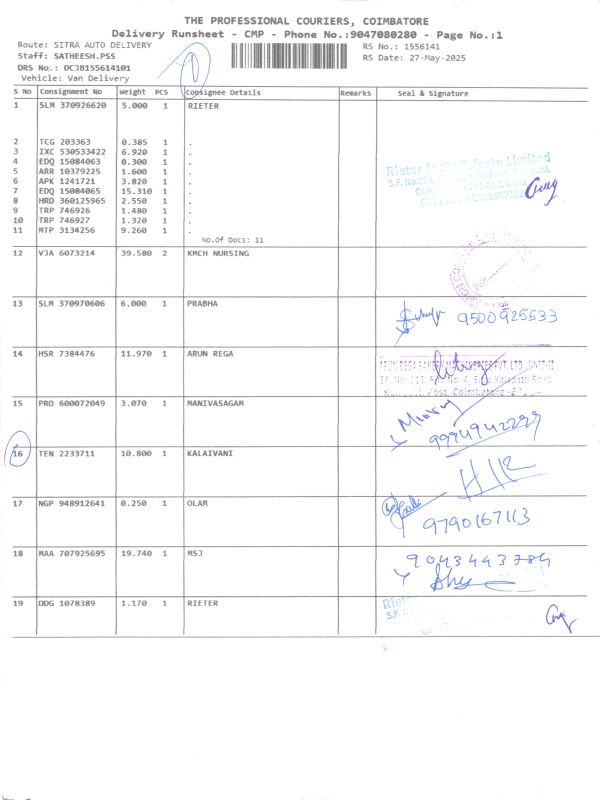 THE PROFESSIONAL COURIERS, COIMBATORE
Delivery Runsheet - CMP - Phone No.:9047080280 - Page No.:1
Route: SITRA AUTO DELIVERY RS No.: 1556141
Staff: SATHEESH.PSS RS Date: 27-May-2025
DRS No.: DCJ8155614101
Vehicle: Van Delivery
S No Consignment No Weight PCS Consignee Details Remarks Seal & Signature
1 SLM 370926620 5.000 1 RIETER
2 TCG 203363 0.385 1 .
3 IXC 530533422 6.920 1 .
4 EDQ 15084063 0.300 1 .
5 ARR 10379225 1.600 1 .
6 APK 1241721 3.820 1 .
7 EDQ 15084065 15.310 1 .
8 HRD 360125965 2.550 1 .
9 TRP 746926 1.480 1 .
10 TRP 746927 1.320 1 .
11 MTP 3134256 9.260 1 .
No.Of Docs: 11
Rieter India Private Limited
12 VJA 6073214 39.580 2 KMCH NURSING
13 SLM 370970606 6.000 1 PRABHA
9500925533
14 HSR 7384476 11.970 1 ARUN REGA
15 PRD 600072049 3.070 1 MANIVASAGAM
9994942299
16 TEN 2233711 10.800 1 KALAIVANI
17 NGP 948912641 0.250 1 OLAM
9790167113
18 MAA 707925695 19.740 1 MSJ
9043443784
19 DDG 1078389 1.170 1 RIETER
Rieter
S.F.